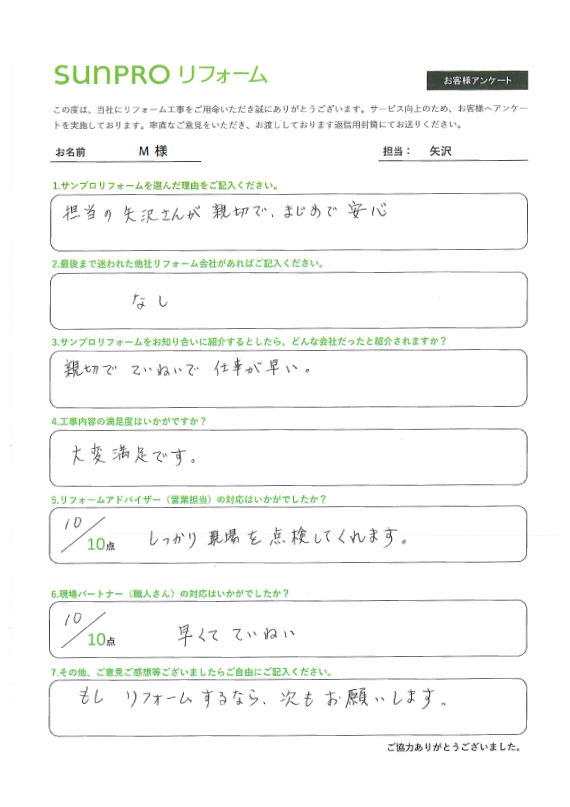 SUNPRO リフォーム
お客様アンケート
この度は、当社にリフォーム工事をご用命いただき誠にありがとうございます。サービス向上のため、お客様へアンケー
トを実施しております。率直なご意見をいただき、お渡ししております返信用封筒にてお送りください。
お名前 M 様 担当： 矢沢
1.サンプロリフォームを選んだ理由をご記入ください。
担当の矢沢さんが親切で、まじめで安心
2.最後まで迷われた他社リフォーム会社があればご記入ください。
なし
3.サンプロリフォームをお知り合いに紹介するとしたら、どんな会社だったと紹介されますか？
親切でていねいで仕事が早い。
4.工事内容の満足度はいかがですか？
大変満足です。
5.リフォームアドバイザー（営業担当）の対応はいかがでしたか？
10/10点 しっかり現場を点検してくれます。
6.現場パートナー（職人さん）の対応はいかがでしたか？
10/10点 早くてていねい
7.その他、ご意見ご感想等ございましたらご自由にご記入ください。
もしリフォームするなら、次もお願いします。
ご協力ありがとうございました。